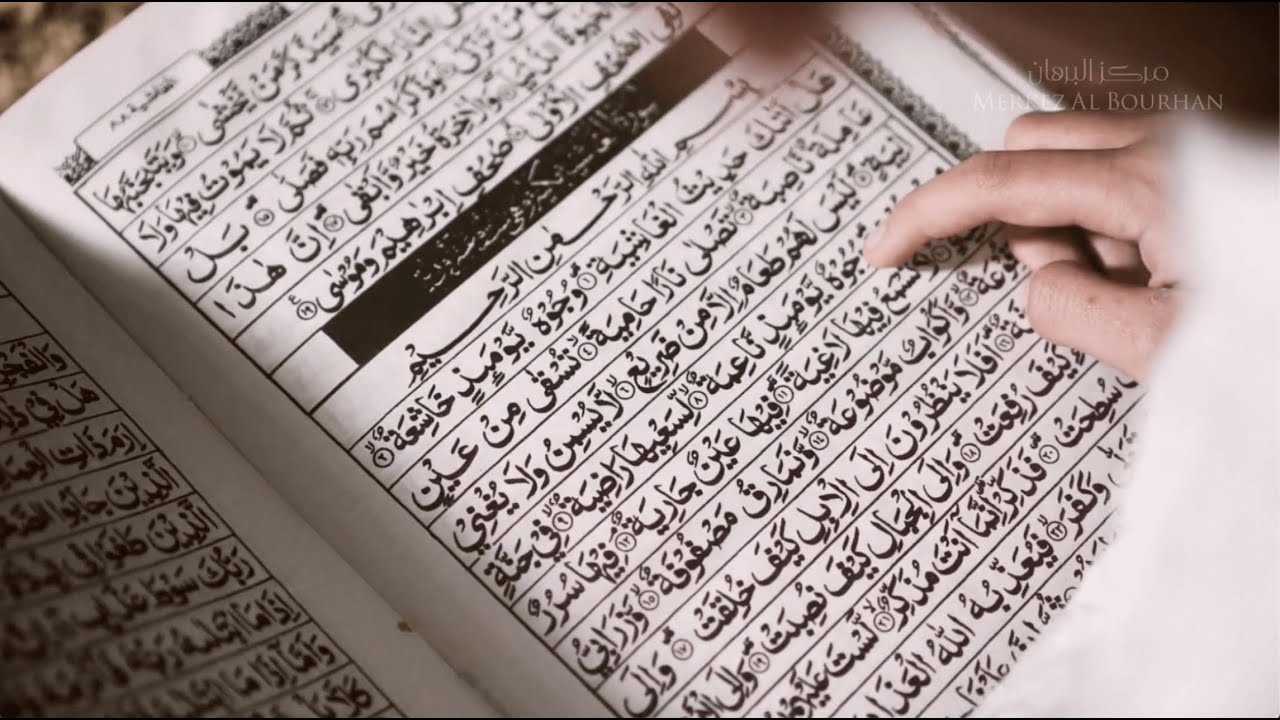 مركز البرهان
MERKEZ AL BOURHAN
سَيَذَّكَّرُ مَنْ يَّخْشٰى ۙ۱۰ وَيَتَجَنَّبُهَا
النَّارَ الْكُبْرٰى ۚ۱۲ ثُمَّ لَا يَمُوْتُ فِيْهَا وَلَا
مَنْ تَزَكّٰى ۙ۱۴ وَذَكَرَ اسْمَ رَبِّهٖ فَصَلّٰى ؕ۱۵ بَلْ
الدُّنْيَا ۖ۱۶ وَالْاٰخِرَةُ خَيْرٌ وَّاَبْقٰى ؕ۱۷ اِنَّ هٰذَا
لَفِى الصُّحُفِ الْاُوْلٰى ۙ۱۸ صُحُفِ اِبْرٰهِيْمَ وَمُوْسٰى ۱۹
بِسْمِ اللّٰهِ الرَّحْمٰنِ الرَّحِيْمِ
هَلْ اَتٰىكَ حَدِيْثُ الْغَاشِيَةِ ؕ۱ وُجُوْهٌ يَّوْمَئِذٍ خَاشِعَةٌ ۙ۲
عَامِلَةٌ نَّاصِبَةٌ ۙ۳ تَصْلٰى نَارًا حَامِيَةً ۙ۴ تُسْقٰى مِنْ عَيْنٍ
اٰنِيَةٍ ؕ۵ لَيْسَ لَهُمْ طَعَامٌ اِلَّا مِنْ ضَرِيْعٍ ۙ۶ لَّا يُسْمِنُ وَلَا يُغْنِيْ
وُجُوْهٌ يَّوْمَئِذٍ نَّاعِمَةٌ ۙ۸ لِّسَعْيِهَا رَاضِيَةٌ ۙ۹ فِيْ جَنَّةٍ
تَسْمَعُ فِيْهَا لَاغِيَةً ؕ۱۱ فِيْهَا عَيْنٌ جَارِيَةٌ ۘ۱۲ فِيْهَا سُرُرٌ
وَّاَكْوَابٌ مَّوْضُوْعَةٌ ۙ۱۴ وَّنَمَارِقُ مَصْفُوْفَةٌ ۙ۱۵ وَّزَرَابِيُّ
اَفَلَا يَنْظُرُوْنَ اِلَى الْاِبِلِ كَيْفَ خُلِقَتْ ۱۷ وَاِلَى
كَيْفَ رُفِعَتْ ۱۸ وَاِلَى الْجِبَالِ كَيْفَ نُصِبَتْ ۱۹ وَاِلَى
سُطِحَتْ ۲۰ فَذَكِّرْ اِنَّمَا اَنْتَ مُذَكِّرٌ ؕ۲۱ لَسْتَ عَلَيْهِمْ
وَكَفَرَ ۙ۲۳ فَيُعَذِّبُهُ اللّٰهُ الْعَذَابَ
وَالْفَجْرِ
هَلْ فِيْ
اِرَمَ ذَاتِ الْعِمَادِ
الَّذِيْنَ جَابُوا
الَّذِيْنَ طَغَوْا فِى
رَبُّكَ سَوْطَ عَذَابٍ
اِذَا مَا ابْتَلٰىهُ رَبُّهُ
وَاَمَّا اِذَا مَا